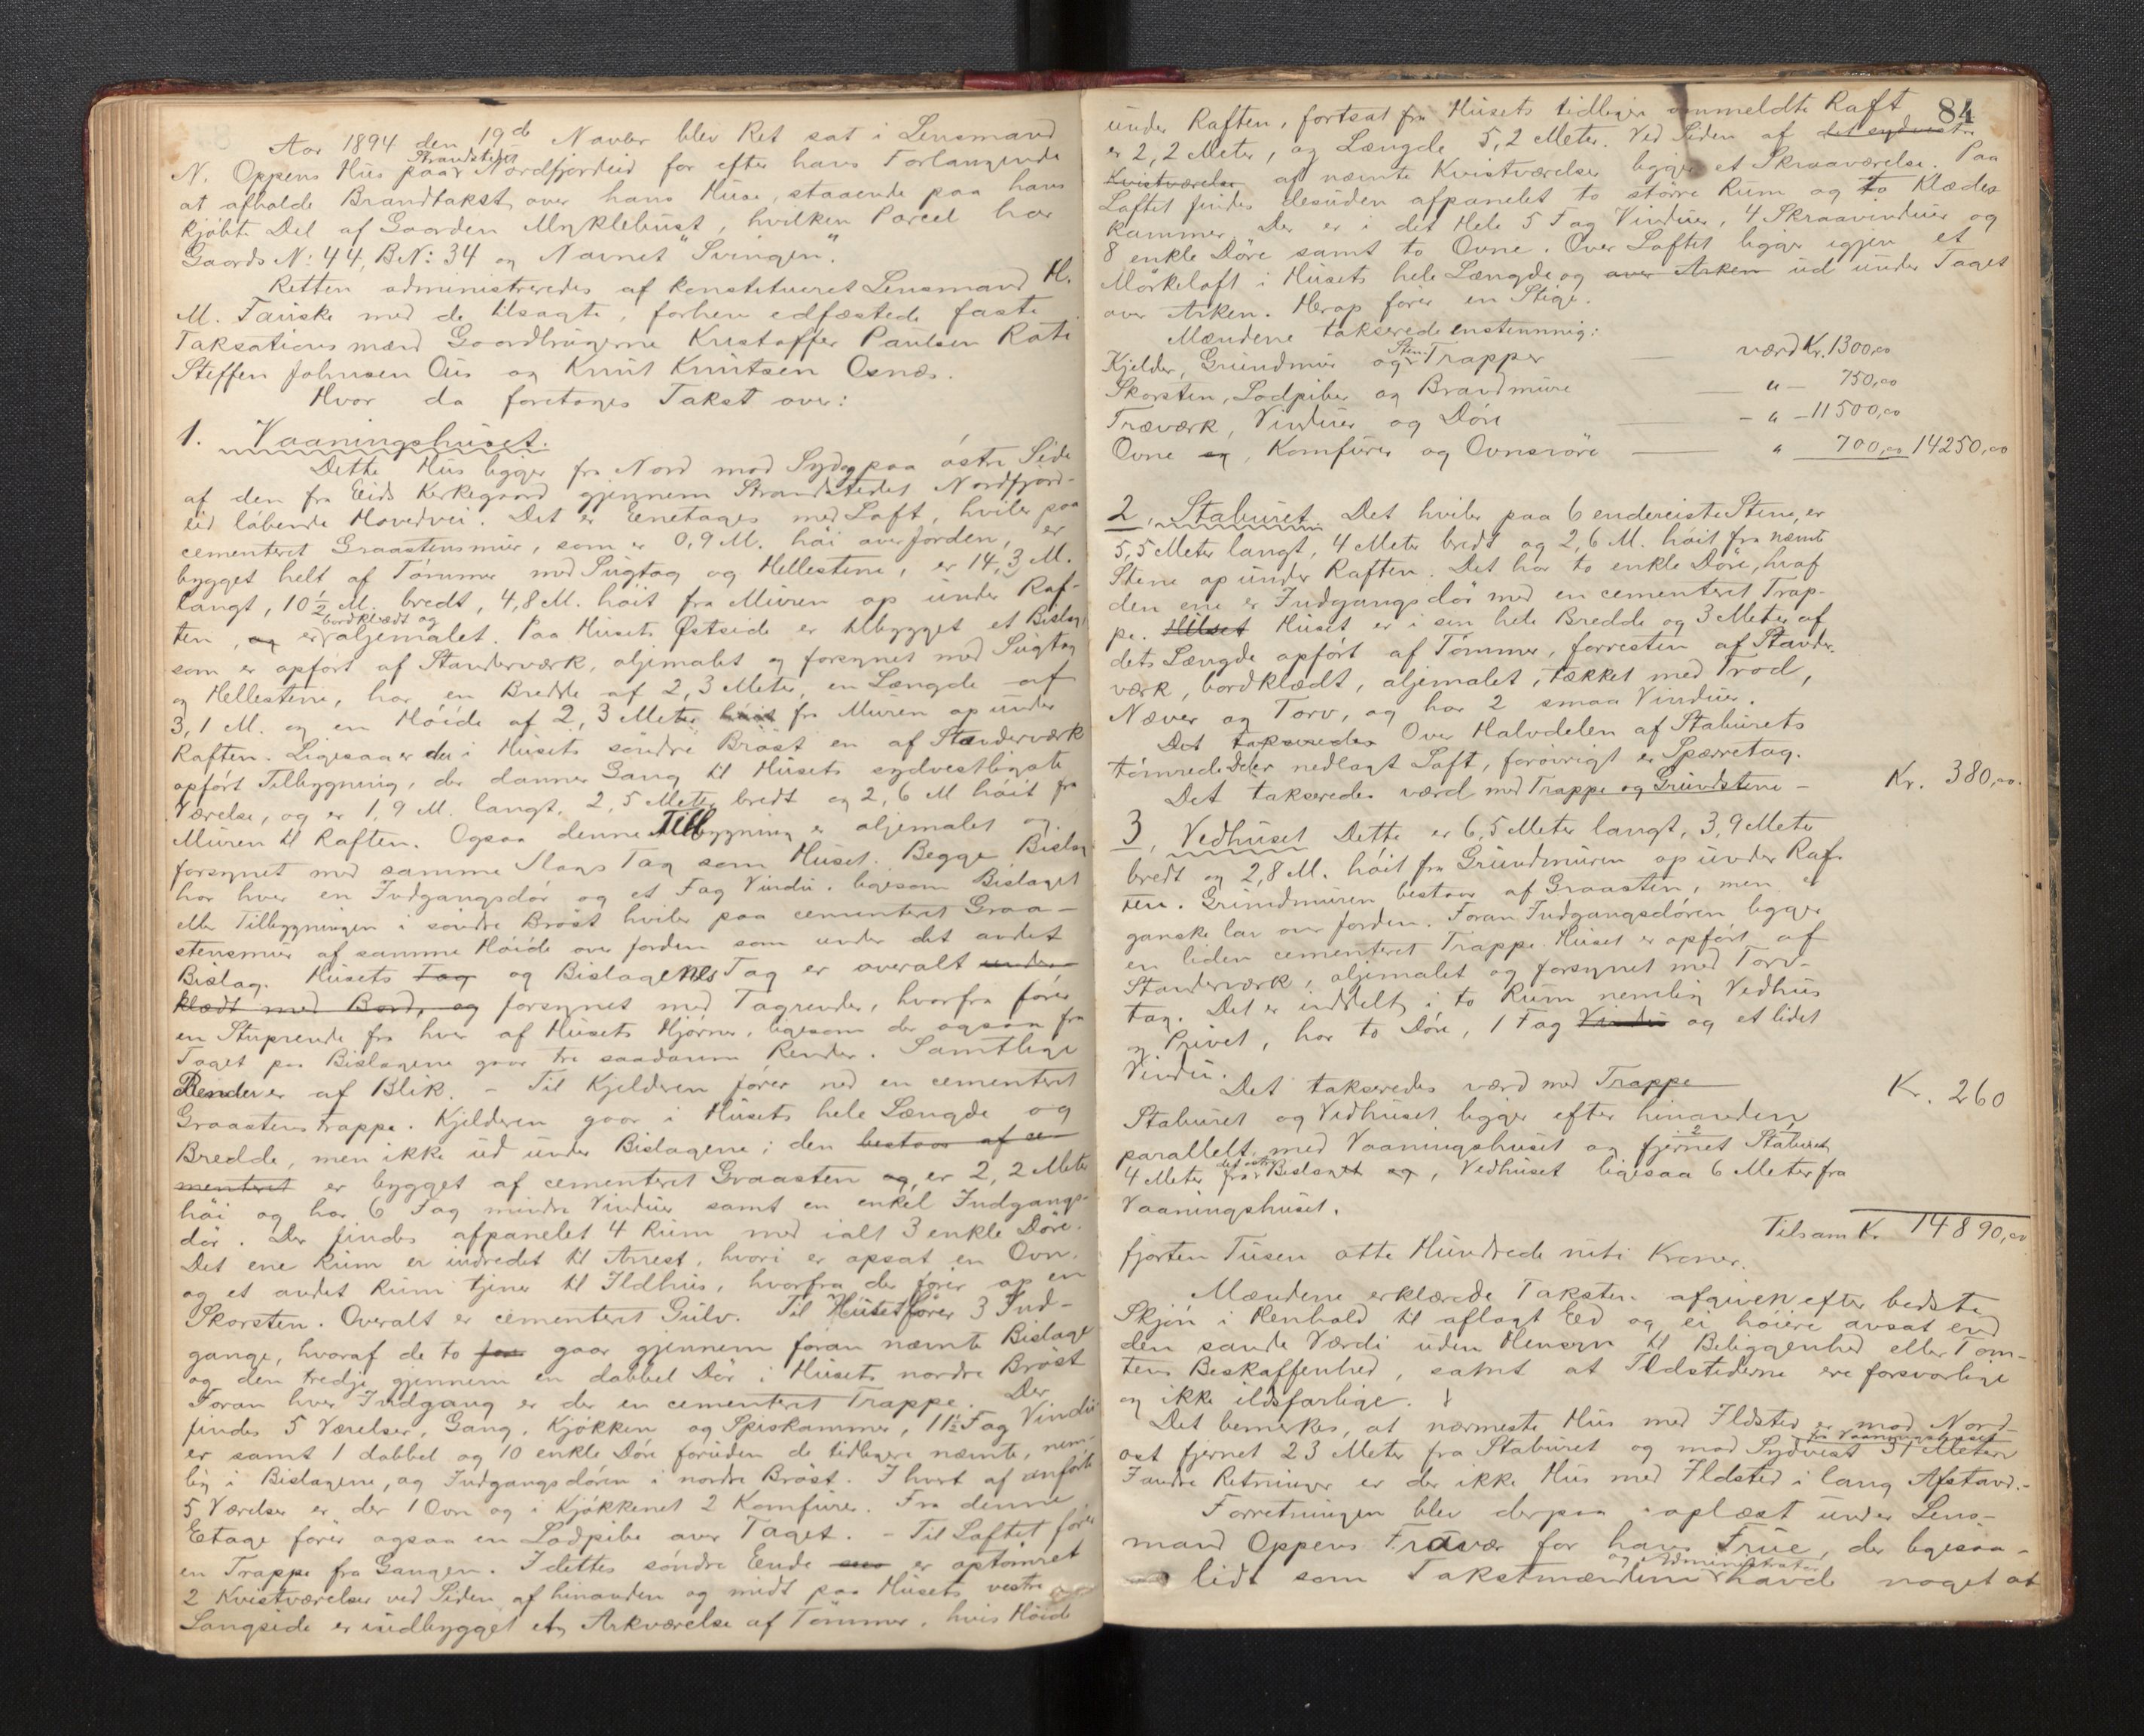 Aar 1894 den 19de Novbr blev Ret sat i Lensmand
N. Oppens Hus paa Strandstedet Nordfjordeid for efter hans Forlangende
at afholde Brandtakst over hans Huse, staaende paa hans
kjøbte Del af Gaarden Myklebust, hvilken Parcel har
Gaards No: 44, B.N: 34 og Navnet "Svingen".
Retten administreredes af konstitueret Lensmand H.
M. Fauske med de tilsagte, forhen edfæstede faste
Taksationsmænd Gaardbrugerne Kristoffer Paulsen Rote
Steffen Johnsen Øus og Knut Knutsen Osnæs.
Hvor da foretoges Takst over:
1. Vaaningshuset.
Dette Hus ligger fra Nord mod Syd og paa østre Side
af den fra Eids Kirkegaard gjennem Strandstedet Nordfjord-
eid løbende Hovedvei. Det er Eenetages med Loft, hviler paa
cementeret Graastensmur, som er 0,9 M. høi over Jorden, er
bygget helt af Tømmer med Sugtag og Hellestene, er 14,3 M.
langt, 10 1/2 M. bredt, 4,8 M. høit fra Muren op under Raf-
ten, og er bordklædt og oljemalet. Paa Husets Østside er tilbygget et Bislag,
som er opført af Standerværk, oljemalet og forsynet med Sugtag
og Hellestene, har en Bredde af 2,3 Meter, en Længde af
3,1 M. og en Høide af 2,3 Meter høit fra Muren op under
Raften. Ligesaa er der i Husets søndre Brøst en af Standerværk
opført Tilbygning, der danner Gang til Husets sydvestligste
Værelse, og er 1,9 M. langt, 2,5 Meter bredt og 2,6 M høit fra
Muren til Raften. Ogsaa denne Tilbygning er oljemalet og
forsynet med samme Slags Tag som Huset. Begge Bislag
har hver en Indgangsdør og et Fag Vindu. ligesom Bislaget
eller Tilbygningen i søndre Brøst hviler paa cementeret Graa-
stensmur af samme Høide over Jorden som under det andet
Bislag. Husets Tag og Bislagenes Tag er overalt under
klædt med Bord, og forsynet med Tagrender, hvorfra fører
en Stuprende fra hver af Husets Hjørner, ligesom der ogsaa fra
Taget paa Bislagene gaar tre saadanne Render. Samtlige
Render er af Blik. - Til Kjelderen fører ned en cementeret
Graastens Trappe. Kjelderen gaar i Husets hele Længde og
Bredde, men ikke ud under Bislagene; den bestaar af ce-
menteret er bygget af cementeret Graasten og, er 2,2 Meter
høi og har 6 Fag mindre Vinduer samt en enkel Indgangs-
dør. Der findes afpanelet 4 Rum med ialt 3 enkle Døre.
Det ene Rum er indredet til Arrest, hvori er opsat en Ovn,
og et andet Rum tjener til Ildhus, hvorfra der fører op en
Skorsten. Overalt er cementeret Gulv. Til Huset fører 3 Ind-
gange, hvoraf de to gaar gjennem foran nævnte Bislage
og den tredje gjennem en dobbel Dør i Husets nordre Brøst
Foran hver Indgang er der en cementeret Trappe. Der
findes 5 Værelser, Gang, Kjøkken og Spiskammer, 11 1/2 Fag Vindu-
er samt 1 dobbel og 10 enkle Døre foruden de tidligere nævnte, nem-
lig i Bislagene, og Indgangsdøren i nordre Brøst. I hvert af anførte
5 Værelser er der 1 Ovn og i Kjøkkenet 2 Komfurer. Fra denne
Etage fører ogsaa en Lodpibe over Taget. - Til Loftet fører
en Trappe fra Gangen. I dettes søndre Eende er optømret
2 Kvistværelser ved Siden af hinanden og midt paa Husets vestre
Langside er indbygget et Arkværelse af Tømmer, hvis Høide
84
under Raften, fortsat fra Husets tidligere ommeldte Raft
er 2,2 Meter, og Længde 5,2 Meter. Ved Siden af det sydvestre
Kvistværelse af nævnte Kvistværelser ligger et Skraaværelse. Paa
Loftet findes desuden afpanelet to større Rum og to Klædes
kammer. Der er i det Hele 5 Fag Vinduer, 4 Skraavinduer og
8 enkle Døre samt to Ovne. Over Loftet ligger igjen et
Mørkeloft i Husets hele Længde og over Arken ud under Taget
over Arken. Herop fører en Stige.
Mændene takserede enstemmig:
Kjelder, Grundmur og Sten Trapper værd Kr. 1300,00
Skorsten, Lodpiber og Brandmure " - 750,00
Træværk, Vinduer og Døre - " - 11500,00
Ovne og, Komfurer og Ovnsrøre " 700,00 14250,00
2, Staburet. Det hviler paa 6 endereiste Stene, er
5,5 Meter langt, 4 Meter bredt og 2,6 M. høit fra nævnte
Stene op under Raften. Det har to enkle Døre, hvaf
den ene er Indgangsdør med en cementeret Trap-
pe. Huset er i sin hele Bredde og 3 Meter af
dets Længde opført af Tømmer, forresten af Stander-
værk, bordklædt, oljemalet, tækket med Trod,
Næver og Torv, og har 2 smaa Vinduer.
Det takseredes Over Halvdelen af Staburets
tømrede Del er nedlagt Loft, forøvrigt er Spærretag.
Det takseredes værd med Trappe og Grundstene - Kr. 380,00.
3, Vedhuset Dette er 6,5 Meter langt, 3,9 Meter
bredt og 2,8 M. høit fra Grundmuren op under Raf-
ten. Grundmuren bestaar af Graasten, men er
ganske lav over Jorden. Foran Indgangsdøren ligger
en liden cementeret Trappe. Huset er opført af
Standerværk, oljemalet og forsynet med Torv-
tag. Det er inddelt i to Rum nemlig Vedhus
og Privet, har to Døre, 1 Fag Vindu og et lidet
Vindu.
Det takseredes værd med Trappe Kr. 260
Staburet og Vedhuset ligger efter hinanden,
parallelt med Vaaningshuset og fjernet Staburet
4 Meter fra det østre Bislaget og, Vedhuset ligesaa 6 Meter fra
Vaaningshuset.
Tilsam Kr. 14890,00
fjorten Tusen otte Hundrede niti Kroner.
Mændene erklærede Taksten afgiven efter bedste
Skjøn i Henhold til aflagt Eed og ei høiere ansat end
den sande Værdi uden Hensyn til Beliggenhed eller Tom-
tens Beskaffenhed, samt at Ildstederne ere forsvarlige
og ikke ildsfarlige.
Det bemerkes, at nærmeste Hus med Ildsted er mod Nord-
ost fjernet 23 Meter fra Staburet og mod Sydvest fra Vaaningshuset 31 Meter
I andre Retninger er der ikke Hus med Ildsted i lang Afstand.-
Forretningen blev derpaa oplæst under Lens-
mand Oppens Fravær for hans Frue, der ligesaa-
lidt som Takstmændene og Administrator havde noget at